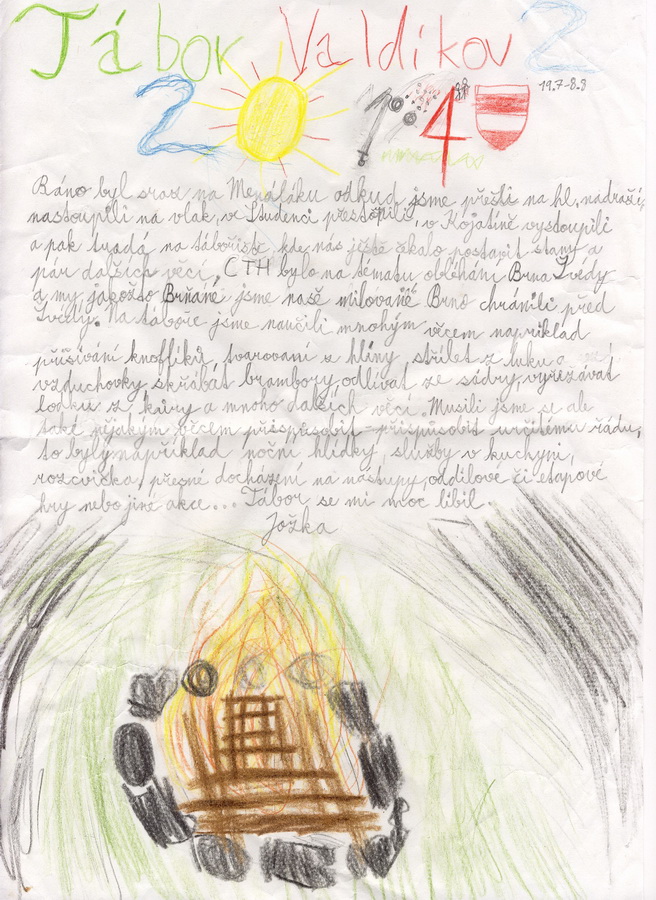 Tábor Valdíkov 2
2014
19.7-8.8
Ráno byl sraz na Mendláku odkud jsme přešli na hl. nadraží,
nastoupili na vlak, v Studenci přestoupili, v Kojatíně vystoupili
a pak tradá na tábořiště, kde nás ještě čekalo postavit stany a
pár dalších věcí. CTH bylo na tématu obléhání Brna Švédy
a my jakožto Brňáné jsme naše milované Brno chránili před
Švédy. Na táboře jsme naučili mnohým věcem například
přišívání knoflíků, tvarovaní z hlíny střílet z luku a
vzduchovky škrábat brambory, odlívat ze sádry, vyřezávat
loďku z kůry a mnoho dalších věcí. Musili jsme se ale
také nějakým věcem přispůsobit určitému řádu,
to byly například noční hlídky, služby v kuchyni,
rozcvička, přesné docházení na nástupy, oddílové či etapové
hry nebo jiné akce... Tábor se mi moc líbil.
Jožka